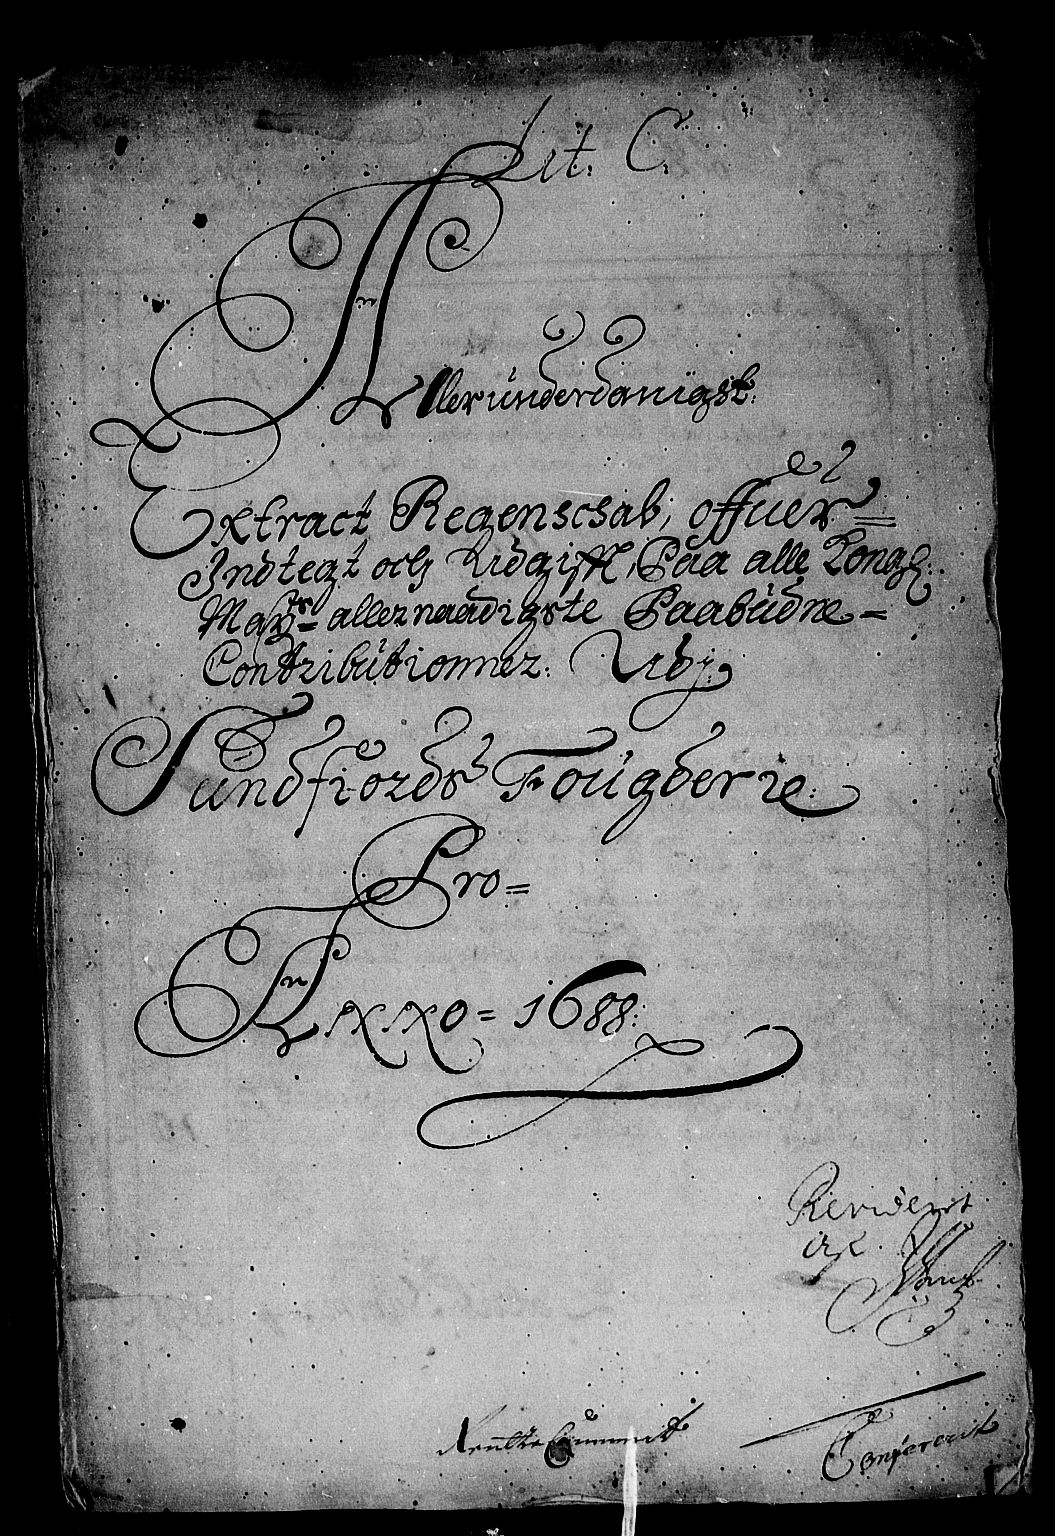 Lit. C.
Allerunderdanigst:
Extract Regenscsab, offuer=
Indtegt och Udgifft, Paa alle Kongl:
Mayts= allernaadigste Paabudne=
Contributionner: Udj
Sundfiords Fougderie:
Pro=
Anno= 1688:
Revideret
af
Renttе Cammerit
Confererit